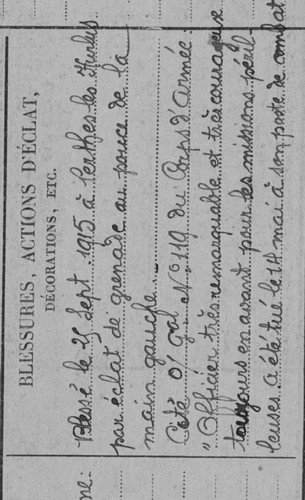 BLESSURES, ACTIONS D'ÉCLAT,
DÉCORATIONS, ETC.
Blessé le 25 Sept 1915 à Perthes les Hurlus
par éclat de grenade au pouce de la
main gauche
Cité O/ gal N° 119 du Corps d'Armée.
"Officier très remarquable et très courageux
toujours en avant pour les missions péril-
leuses a été tué le 14 mai à son poste de combat
ne: